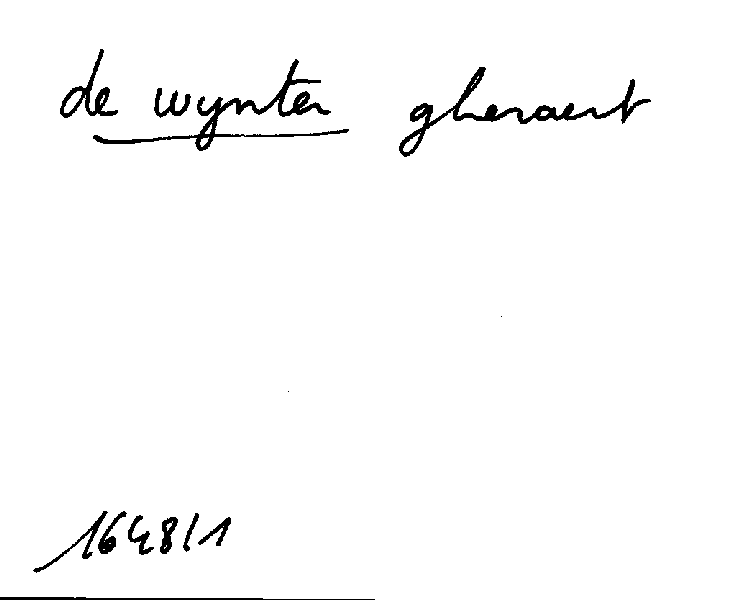 de wynter gheraert
1648/1